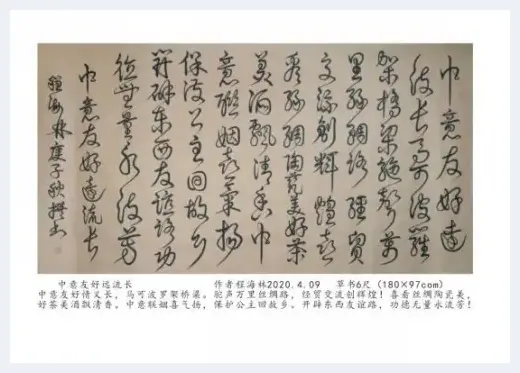 中意友好遠
流长马可波羅
架橋梁駝聲万
里絲綢路經貿
交流創輝煌喜
看絲綢陶瓷美好茶
美酒飘清香中
意聯姻喜氣揚
保護公主回故乡
開辟东西友谊路功
德無量永流芳
中意友好遠流长
程海林庚子秋撰书
中意友好远流长 作者程海林2020.4.09 草书6尺（180×97com）
中意友好情又长，马可波罗架桥梁。驼声万里丝绸路，经贸交流创辉煌！喜看丝绸陶瓷美，
好茶美酒飘清香。中意联姻喜气扬，保护公主回故乡。开辟东西友谊路，功德无量永流芳！